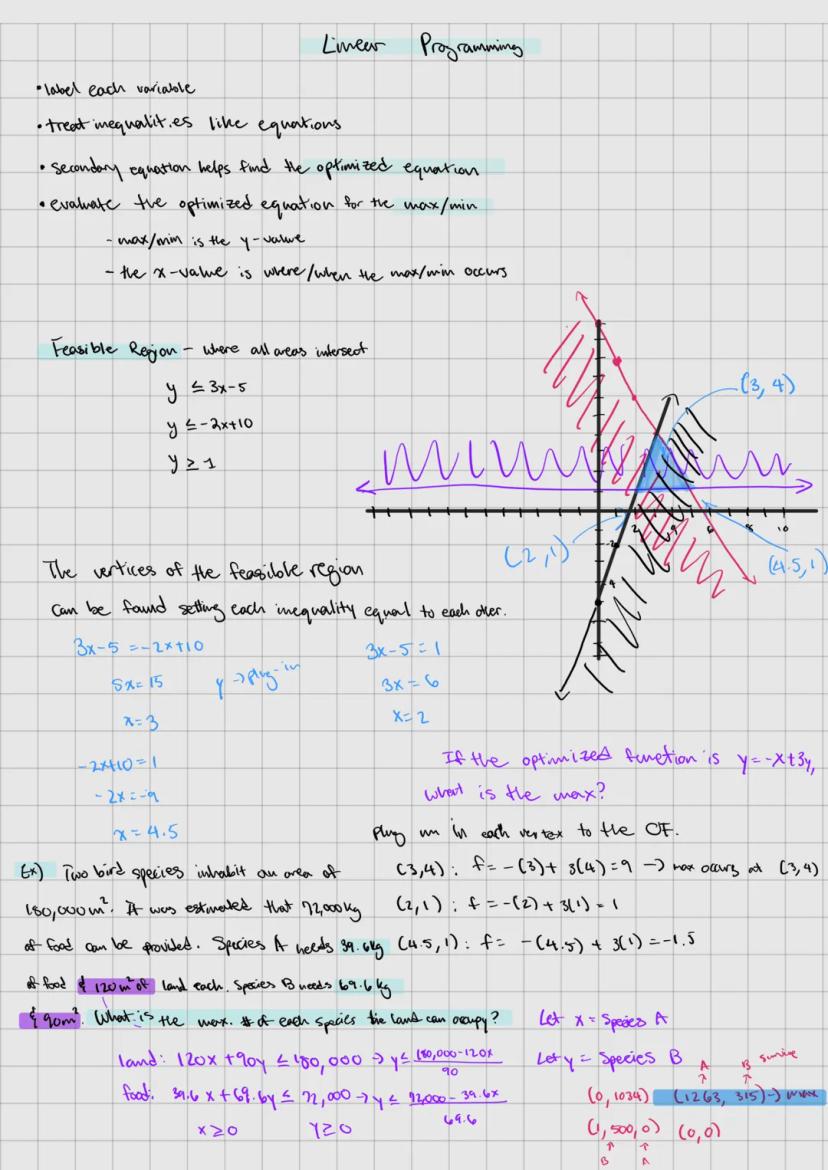 Linear Programming
• label each variable
• treat inequalities like equations
• secondary equation helps find the optimized equation
• evaluate the optimized equation for the max/min
- max/min is the y-value
- the x-value is where/when the max/min occurs
Feasible Region - where all areas intersect
y ≤ 3x-5
y ≤ -2x+10
y ≥ 1
(3, 4)
(2, 1)
(4.5, 1)
2 4 6 8 10
The vertices of the feasible region
can be found setting each inequality equal to each other.
3x-5 = -2x+10
5x = 15
x = 3
y → plug-in
3x-5 = 1
3x = 6
x = 2
-2x+10 = 1
-2x = -9
x = 4.5
If the optimized function is y = -x+3y,
what is the max?
Plug in each vertex to the OF.
(3,4) : f = -(3) + 3(4) = 9 → max occurs at (3,4)
(2,1) : f = -(2) + 3(1) = 1
(4.5,1) : f = -(4.5) + 3(1) = -1.5
Ex) Two bird species inhabit an area of
180,000 m². It was estimated that 72,000 kg
of food can be provided. Species A needs 39.6 kg
of food & 120 m² of land each. Species B needs 69.6 kg
& 90 m². What is the max. # of each species the land can occupy?
Let x = Species A
Let y = Species B
land: 120x + 90y ≤ 180,000 → y ≤ (180,000 - 120x)/90
food: 39.6x + 69.6y ≤ 72,000 → y ≤ (72,000 - 39.6x)/69.6
x ≥ 0 y ≥ 0
A B survive
(0, 1034) (1263, 315) → max
(1,500, 0) (0,0)
B A